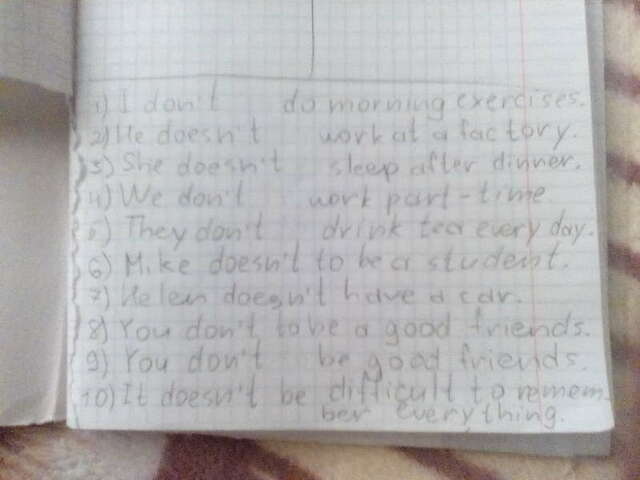 1) I don't do morning exercises.
2) He doesn't work at a factory.
3) She doesn't sleep after dinner.
4) We don't work part-time
5) They don't drink tea every day.
6) Mike doesn't to be a student.
7) Helen doesn't have a car.
8) You don't to be a good friends.
9) You don't be good friends.
10) It doesn't be difficult to remem
ber everything.